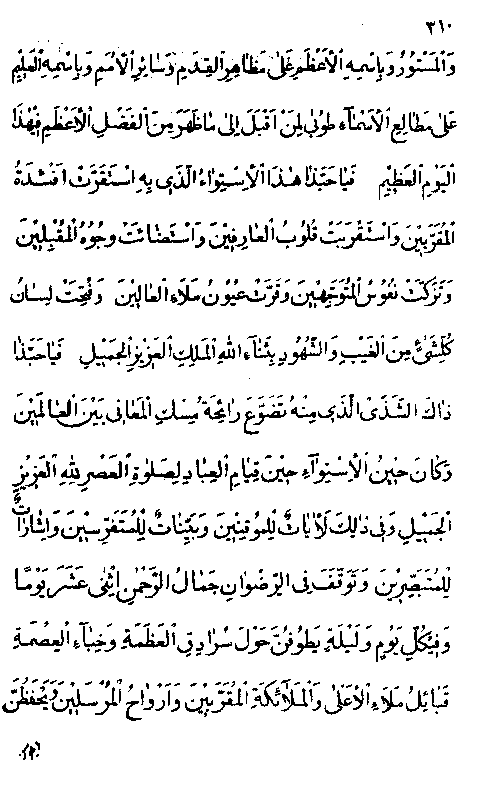 ٣١٠
وَالْمَسْتُورُ وَبِاسْمِهِ الْأَعْظَمِ عَلَى مَظَاهِرِ الْقِدَمِ وَسَائِرِ الْأُمَمِ وَبِاسْمِهِ الْعَلِيمِ
عَلَى مَطَالِعِ الْأَسْمَاءِ طُوبَى لِمَنْ أَقْبَلَ إِلَى مَا ظَهَرَ مِنَ الْفَضْلِ الْأَعْظَمِ فِي هٰذَا
الْيَوْمِ الْعَظِيمِ فَيَا حَبَّذَا هٰذَا الْاِسْتِوَاءُ الَّذِي بِهِ اسْتَقَرَّتْ اَفْئِدَةُ
الْمُقَرَّبِينَ وَاسْتَقْرَبَتْ قُلُوبُ الْعَارِفِينَ وَاسْتَضَائَتْ وُجُوهُ الْمُقْبِلِينَ
وَتَزَكَّتْ نُفُوسُ الْمُتَوَجِّهِينَ وَقَرَّتْ عُيُونُ مَلَاءِ الْعَالِينَ وَفُتِحَتْ لِسَانُ
كُلِّشَیْءٍ مِنَ الْغَيْبِ وَالشُّهُودِ بِثَنَاءِ اللهِ الْمَلِكِ الْعَزِيزِ الْجَمِيلِ فَيَا حَبَّذَا
ذَاكَ الشَّذَى الَّذِي مِنْهُ تَضَوَّعَ رَائِحَةُ مِسْكِ الْمَعَانِي بَيْنَ الْعَالَمِينَ
وَكَانَ حِينُ الْاِسْتِوَاءِ حِينَ قِيَامِ الْعِبَادِ لِصَلٰوةِ الْعَصْرِ لِلّٰهِ الْعَزِيزِ
الْجَمِيلِ وَفِي ذَالِكَ لَاٰيَاتٌ لِلْمُوقِنِينَ وَبَيِّنَاتٌ لِلْمُتَفَرِّسِينَ وَاِشَارَاتٌ
لِلْمُتَبَصِّرِينَ وَتَوَقَّفَ فِي الرِّضْوَانِ جَمَالُ الرَّحْمٰنِ اِثْنَى عَشَرَ يَوْمًا
وَفِيكُلِّ يَوْمٍ وَلَيْلَةٍ يَطُوفُنَّ حَوْلَ سُرَادِقِ الْعَظَمَةِ وَخِبَاءِ الْعِصْمَةِ
قَبَائِلُ مَلَاءِ الْاَعْلَى وَالْمَلَآئِكَةِ الْمُقَرَّبِينَ وَاَرْوَاحُ الْمُرْسَلِينَ وَيَحْفَظُنَّ